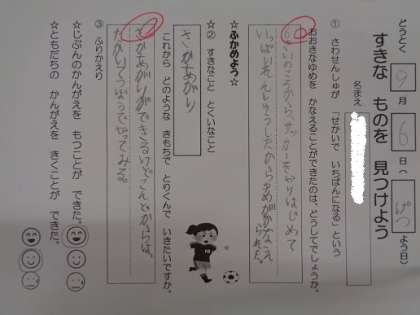 どうとく
すきな ものを 見つけよう
9月6日(げつよう日)
名まえ
① さわせんしゅが 「せかいで いちばんになる」という
おおきなゆめを かなえることができたのは、どうしてでしょうか。
6さいのころから、サッカーをやりはじめて
いっぱいれんしゅうしたからゆめがかなえ
られた。
☆ふかめよう☆
☆② すきなこと とくいなこと
さかあがり
これから どのような きもちで とりくんで いきたいですか。
さかあがりができるけどこんどからは、
たかいてつぼうでやってみる。
③ ふりかえり
☆じぶんのかんがえを もつことが できた。
☆ともだちの かんがえを きくことが できた。